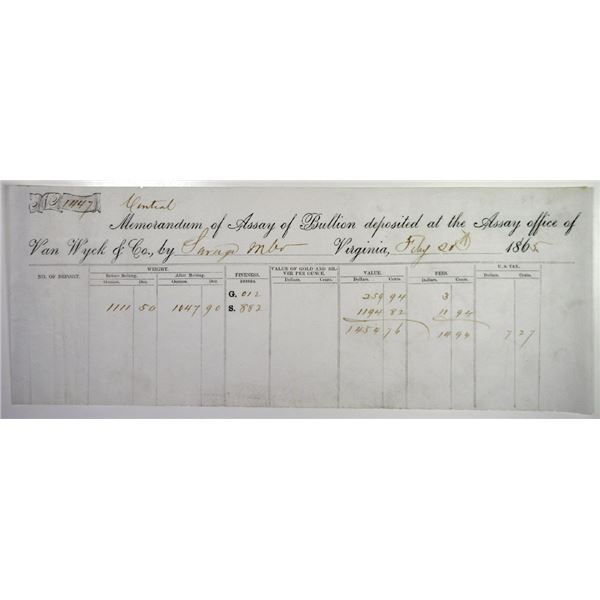 No 11147
Central
Memorandum of Assay of Bullion deposited at the Assay office of
Van Wyck & Co., by Savage M Co Virginia, Feby 20th 1865
NO. OF DEPOSIT. WEIGHT. FINENESS. VALUE OF GOLD AND SILVER PER OUNCE. VALUE. FEES. U. S. TAX.
Before Melting. After Melting.
Ounces. Dec. Ounces. Dec. Dollars. Cents. Dollars. Cents. Dollars. Cents. Dollars. Cents.
G. 012 259 94 3
1111 50 1047 90 S. 882 1194 82 11 94
1454 76 14 94 7 27